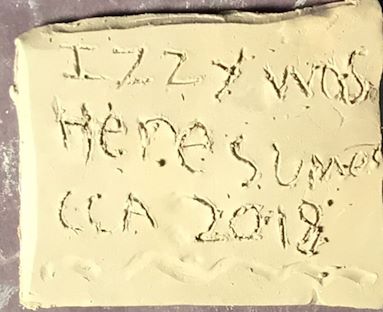 Izzy was
Here Sumer
CCA 2018